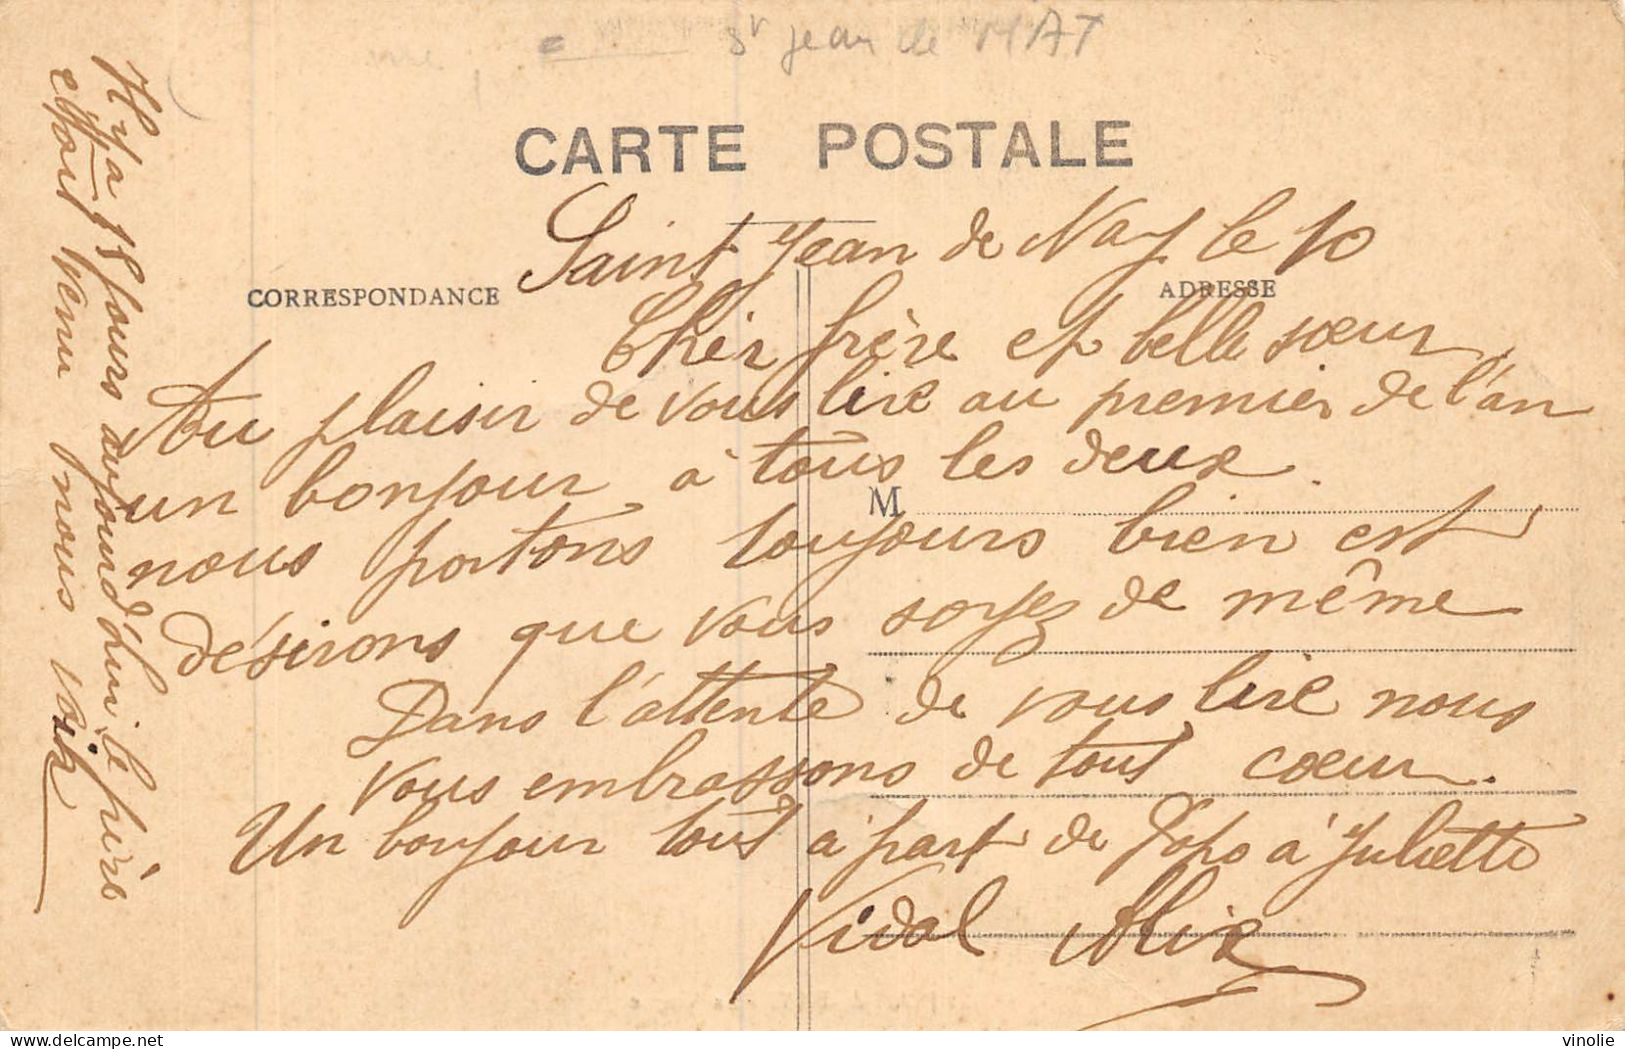 St Jean de MAT
CARTE POSTALE
Saint Jean de Nay le 10
CORRESPONDANCE
ADRESSE
Chèr frère et belle sœur
Au plaisir de vous lire au premier de l'an
un bonjour à tous les deux.
M
nous portons toujours bien est
désirons que vous soyez de même
Dans l'attente de vous lire nous
vous embrassons de tout cœur.
Un bonjour tout à part de Popo à Juliette
Vidal Alix
Il y a 15 jours aujourd'hui le père
était venu nous voir
vinolie